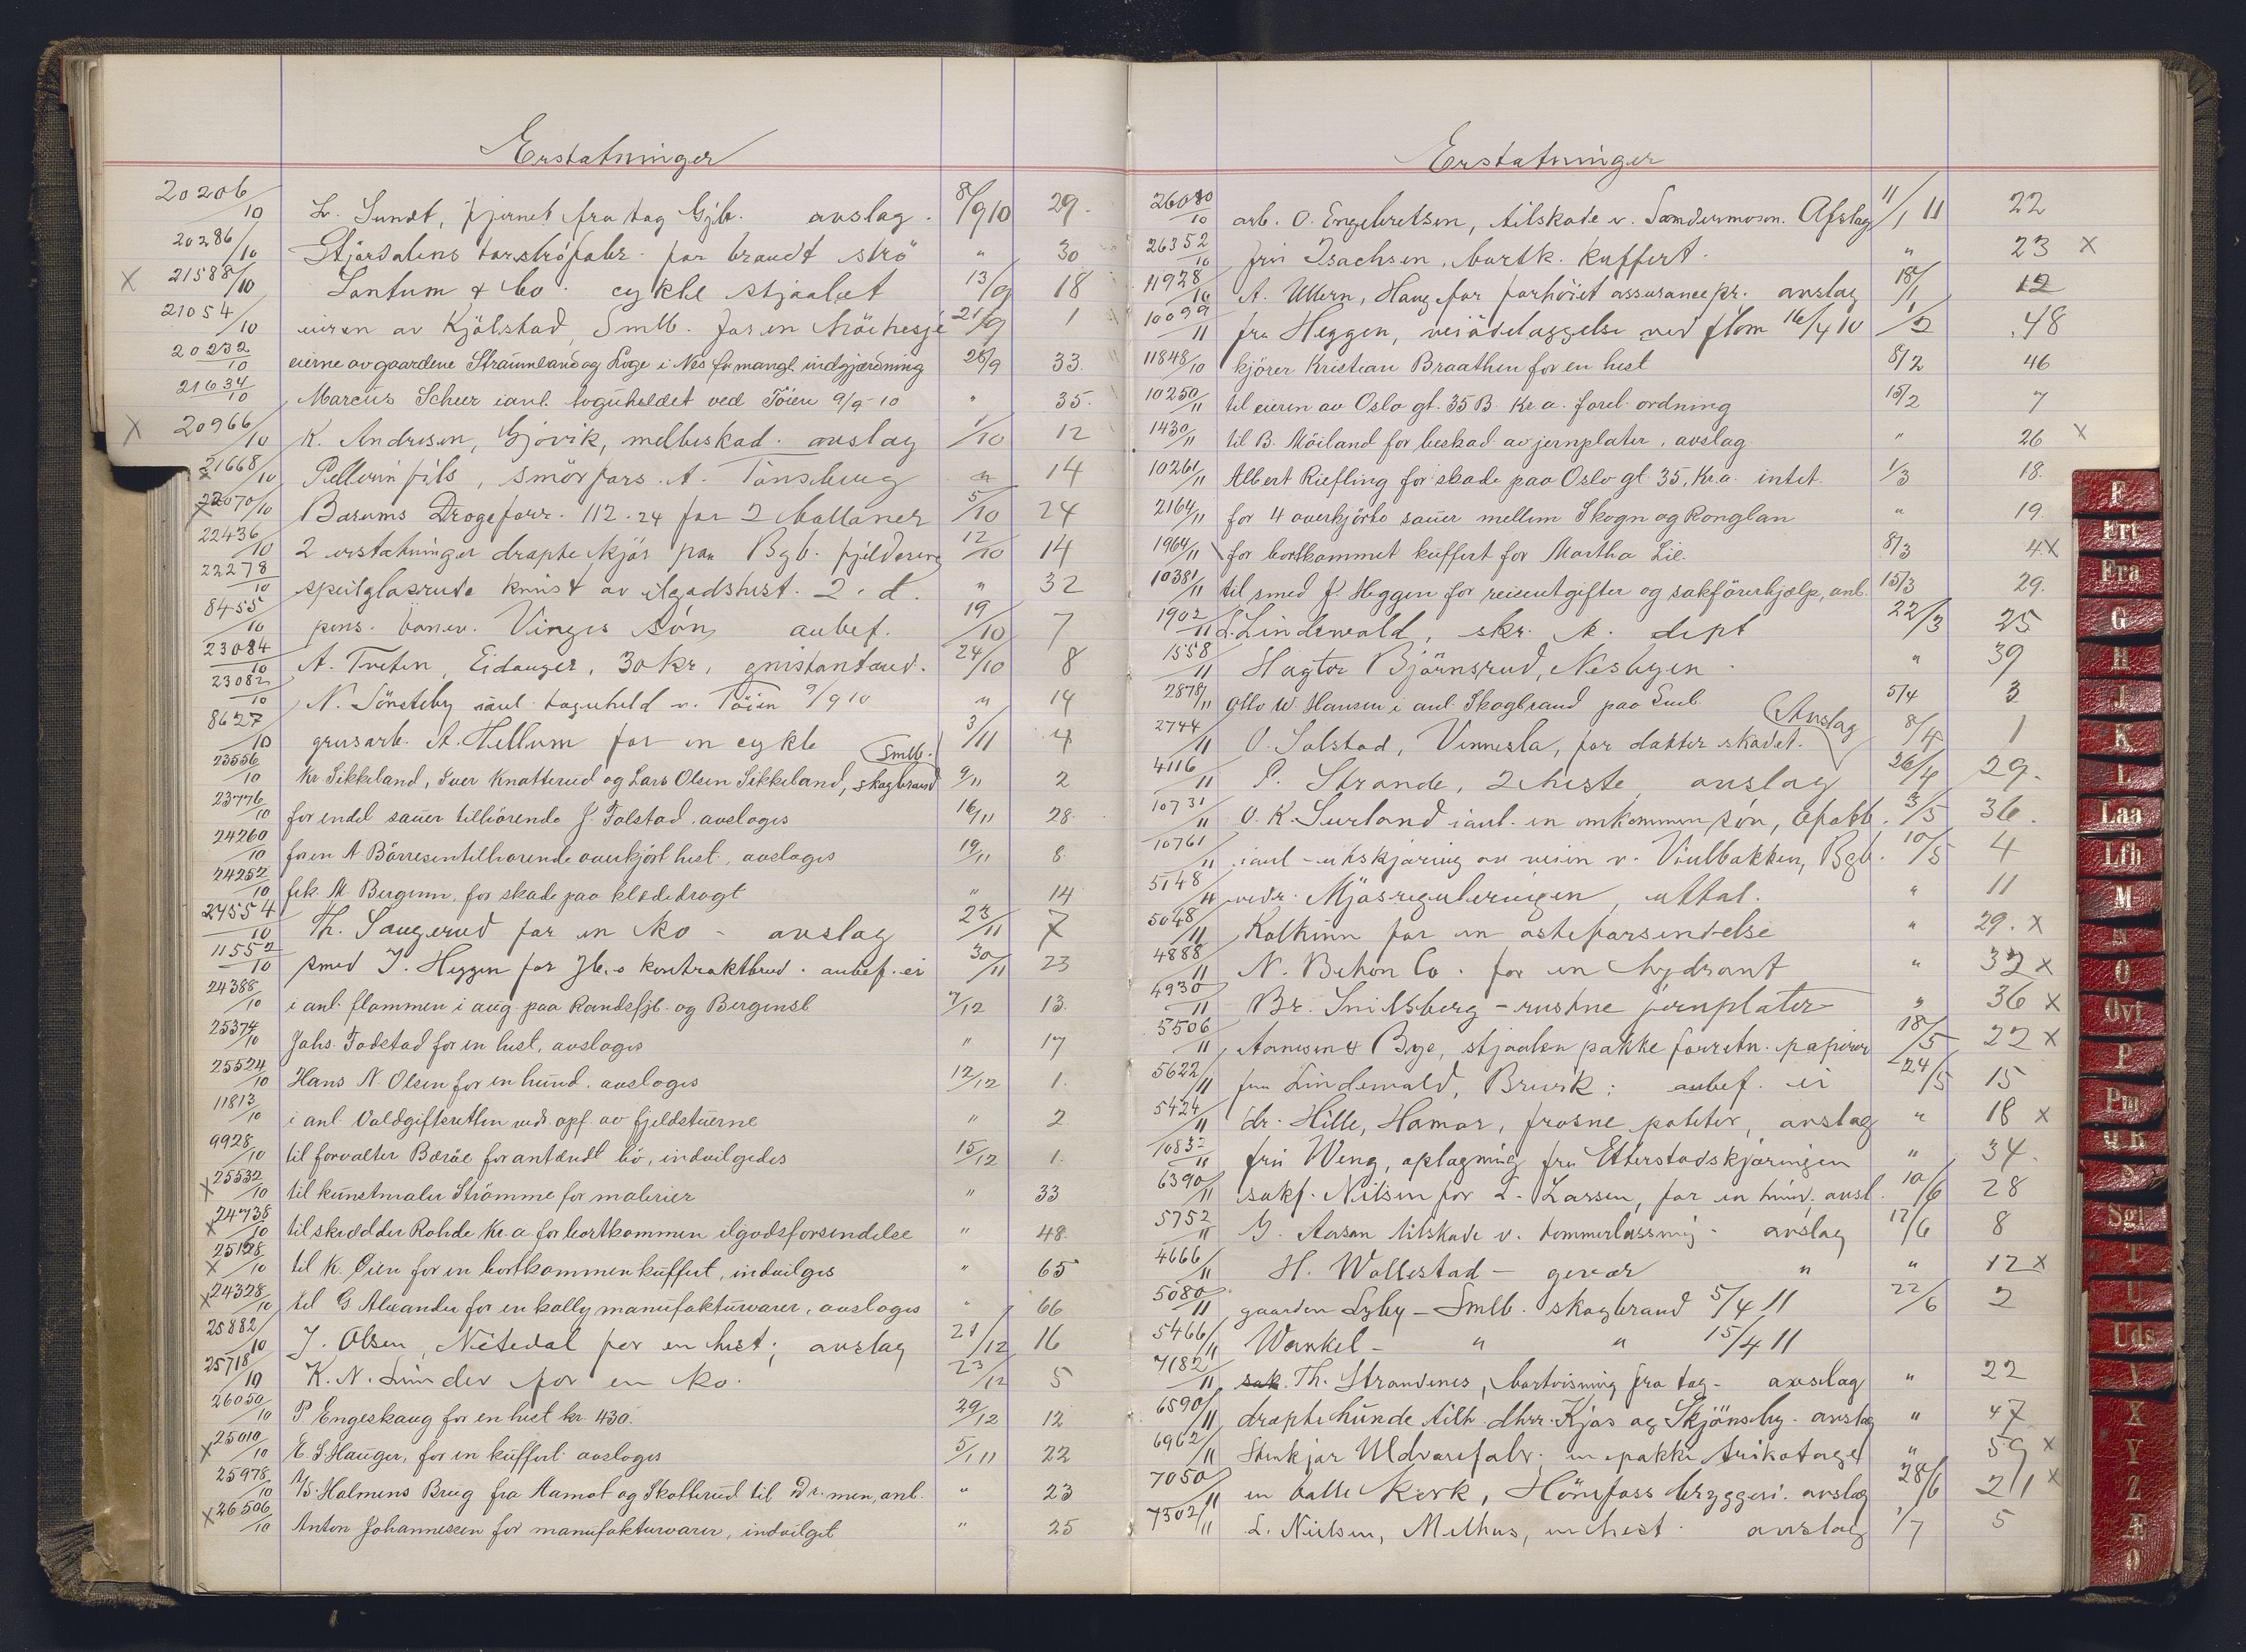 Erstatninger
20206/10 L. Sundt, fjernet fra tog Gjb. avslag. 8/9 10 29.
20286/10 Stjørdalens torvströfabr. for brandt strö " 30
X 21588/10 Lantum & Co. cykkel stjaalet 13/9 18
21054/10 eieren av Kjölstad, Smlb. for en 21/9 1
20232/10 eierne av gaardene Straumland og i Nes for mangl. indgjærdning 26/9 33.
21634/10 Marcus Scheer i anl. toguheldet ved Töien 9/9-10 " 35.
X 20966/10 K. Andresen, Gjøvik, melbeskad. avslag 1/10 12
X 21668/10 Pellerin fils, smörfors. t. Tönsberg " 14
X 22070/10 Bærums Drogeforr. 112.24 for 2 ballaner 5/10 24
22436/10 2 erstatninger dræpte kjör paa Bgb. 12/10 14
22278/10 speilglasrute knust av ilgodshest. 2. d. " 32
8455/10 pens. banev. Vinges sön anbef. 19/10 7
23084/10 A. Tveten, Eidanger, 30 kr, gnistantænd. 24/10 8
23082/10 N. Sönsteby i anl. toguheld v. Töien 9/9 10 " 14
8627/10 grusarb. A. Hellum for en cykle 3/11 4
23556/10 Kr. Sikkeland, Iver Knatterud og Lars Olsen Sikkeland, skogbrand (Smlb.) 9/11 2
23776/10 for endel sauer tilhörende J. Folstad. avsloges 16/11 28.
24260/10 for en A Börresen tilhörende overkjört hest, avsloges 19/11 8.
24252/10 frk. M Bergum, for skade paa klædedragt " 14
24554/10 Th. Saugerud for en ko - avslag 23/11 7
11552/10 smed J. Heggen for Jb.s kontraktbrud. anbef. ei 30/11 23
24388/10 i anl. flommen i aug. paa Randsfjb. og Bergensb 7/12 13.
25374/10 Johs. Fodstad for en hest, avsloges " 17
25524/10 Hans N. Olsen for en hund. avsloges 12/12 1.
11813/10 i anl. Voldgiftsretten vedr. opf. av fjeldstuerne " 2
9928/10 til forvalter Bæröe for antændt hö, indvilgedes 15/12 1.
X 25532/10 til kunstmaler Strömme for malerier " 33
X 24738/10 til skrædder Rohde Kr.a for bortkommen ilgodsforsendelse " 48.
X 25128/10 til K. Öien for en bortkommen kuffert, indvilges " 65
X 24328/10 til G Alexander for en kolly manufakturvarer, avsloges " 66
25882/10 J. Olsen, Nitedal for en hest; avslag 21/12 16
25718/10 K. N. Linder for en ko. 23/12 5
26050/10 P Engeskaug for en hest kr. 430. 29/12 12
X 25010/10 E. S. Hauger, for en kuffert avsloges 5/1 11 22
25978/10 A/S. Holmens Brug fra Aamot og Skotterud til Dr.men, anl. " 23
X 26506/10 Anton Johannesen for manufakturvarer, indvilget " 25
Erstatninger
26080/10 arb. O. Engebretsen, tilskade v. Sandermosen. Afslag 11/1 11 22
26352/10 frü Isachsen, bortk. kuffert. " 23 X
11928/10 A. Ullern, Haug for forhöiet assurancepr. avslag 18/1 12
10099/11 fra Heggen, veiödelæggelse ved flom 16/4 10 1/2 48
11848/10 kjörer Kristian Braathen for en hest 8/2 46
10250/11 til eieren av Oslo gt. 35 B. Kr.a. forel. ordning 15/2 7
1430/11 til B. Möiland for beskad av jernplater, avslag " 26 X
10261/11 Albert Riefling for skade paa Oslo gt. 35, Kr.a. intet. 1/3 18.
2164/11 for 4 overkjörte sauer mellem Skogn og Ronglan " 19.
1964/11 for bortkommet kuffert for Martha Lie. 8/3 4 X
10381/11 til smed J. Heggen for reiseutgifter og sakförerhjælp, anl. 15/3 29.
1902/11 L. Lindewald, skr. A. dept 22/3 25
1558/11 Hagtor Björnsrud, Nesbyen. " 39
2878/11 Otto W. Hansen i anl. Skogbrand paa Smlb 5/4 3
2744/11 O. Solstad, Vennesla, for datter skadet. (Avslag) 8/4 1
4116/11 P. Strande, 2 heste, avslag 26/4 29.
10731/11 O. K. Surland i anl. en omkommen sön, Ofotb. 3/5 36.
10761/11 i anl. utskjæring av veien v. Vinlbakken, Bgb. 10/5 4
5148/11 vedr. Mjösreguleringen, uttal. " 11
5048/11 Kolkinn for en osteforsendelse " 29. X
4888/11 N. Beton Co. for en hydrant " 32 X
4930/11 Br. Snilsberg - rustne jernplater " 36 X
5506/11 Arnesen & Bye, stjaalen pakke forretn. papirer 18/5 22 X
5622/11 fru Lindewald, Brevik: anbef. ei 24/5 15
5424/11 dr. Hille, Hamar, frosne poteter, avslag " 18 X
10832/11 frü Weng, oplagning fra Etterstadskjæringen " 34.
6390/11 sakf. Nilsen for L. Larsen, for en hund; avsl. 10/6 28
5752/11 G. Aasan tilskade v. tømmerlæssing - avslag 17/6 8
4666/11 H. Wollestad - gevær " " 12 X
5080/11 gaarden Lyby - Smlb. skogbrand 5/4 11 22/6 2
5466/11 Wankel - " " 15/4 11
7182/11 Th. Strandenes, bortvisning fra tog - avslag " 22
6590/11 dræpte hunde tilh. dhrr. Kjos og Skjönsby. avslag " 47
6962/11 Stenkjær Uldvarefabr. en pakke trikotage " 59 X
7050/11 en balle kork, Hönefoss bryggeri. avslag 28/6 211 X
7502/11 L. Nielsen, Melhus, en hest. avslag 1/7 5
E
Ert
Fra
G
H
J
K
L
Laa
Lfb
M
N
O
Ovf
P
Pm
Q R
S
Sgl
T
U
Uds
V
X
Y
Z
Æ
Ø